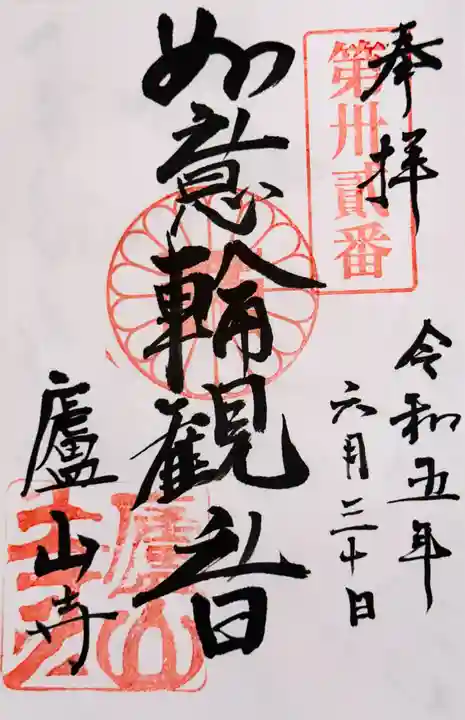 奉拝
第卅貳番
令和五年
六月三十日
如意輪觀音
廬山寺
廬山